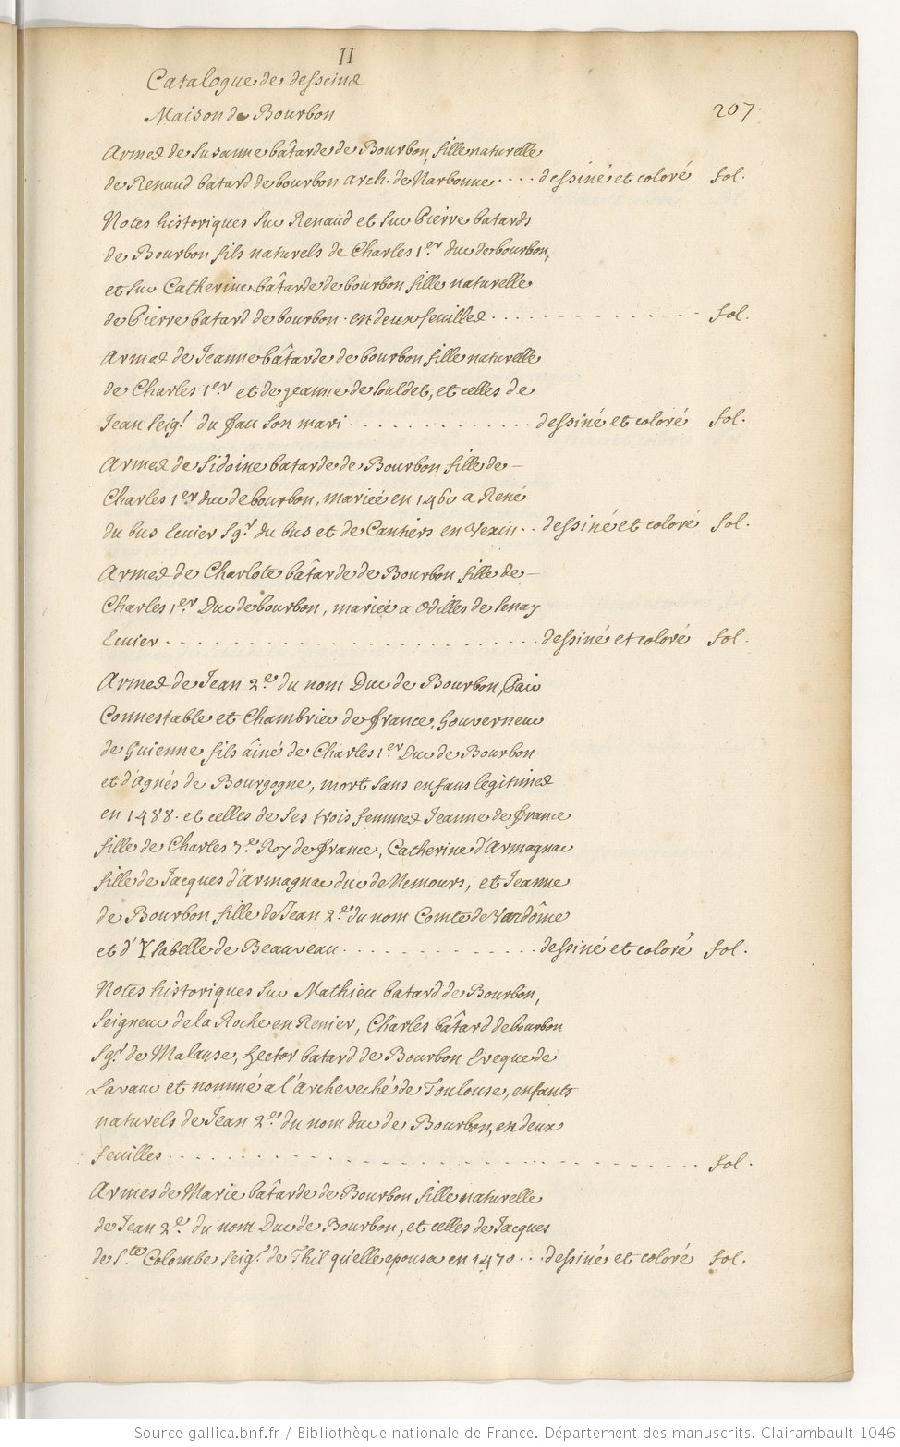 II
Catalogue de desseins
Maison de Bourbon
207
Armes de Susanne bâtarde de Bourbon, fille naturelle
de Renaud batard de bourbon arch. de Narbonne .... dessiné et coloré fol.
Notes historiques sur Renaud et sur Pierre batards
de Bourbon fils naturels de Charles 1.er duc de bourbon,
et sur Catherine bâtarde de bourbon fille naturelle
de Pierre batard de bourbon. en deux feuilles .............. fol.
Armes de Jeanne bâtarde de bourbon, fille naturelle
de Charles 1.er et de jeanne de souldet, et celles de
Jean Seig.r du fau son mari ............ dessiné et coloré fol.
Armes de Sidoine batarde de Bourbon fille de –
Charles 1.er duc de bourbon, mariée en 1460 a René
du bus Ecuier Sg.r du bus et de Cantiers en Vexin .. dessiné et coloré fol.
Armes de Charlote bâtarde de Bourbon fille de –
Charles 1.er Duc de bourbon, mariée a Odilles de Senay
Ecuier ........................ dessiné et coloré fol.
Armes de Jean 2.e du nom Duc de Bourbon, Pair
Connestable et Chambrier de france, Gouverneur
de Guienne fils âiné de Charles 1.er Duc de Bourbon
et d'Agnés de Bourgogne, mort sans enfans legitimes
en 1488. et celles de ses trois femmes Jeanne de france
fille de Charles 7.e Roy de france, Catherine d'Armagnac
fille de Jacques d'Armagnac duc de Nemours, et Jeanne
de Bourbon fille de Jean 2.e du nom Comte de Vandôme
et d'Ysabelle de Beauveau ............ dessiné et coloré fol.
Notes historiques sur Mathieu batard de Bourbon,
Seigneur de la Roche en Renier, Charles bâtard de bourbon
Sg.r de Malause, hector batard de Bourbon Eveque de
Lavaur et nommé a l'Archeveché de Toulouse, enfants
naturels de Jean 2.e du nom duc de Bourbon, en deux
feuilles .............................. fol.
Armes de Marie batarde de Bourbon fille naturelle
de Jean 2.e du nom Duc de Bourbon, et celles de Jacques
de S.te Colombe Seig.r de Thil qu'elle epousa en 1470 ... dessiné et coloré fol.
Source gallica.bnf.fr / Bibliothèque nationale de France. Département des manuscrits. Clairambault 1046